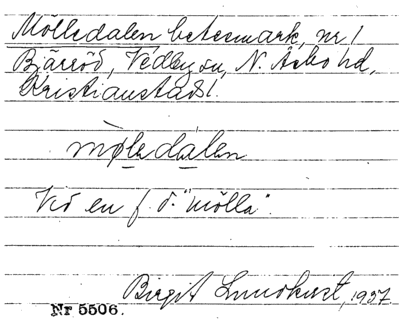 Mölledalen betesmark, nr 1
Bjärröd, Vedby sn, N. Åsbo hd,
Kristianstads l.
mø̀lədálen
Vid en f. d. "mölla".
Birgit Lundkvist, 1937
Nr 5506.